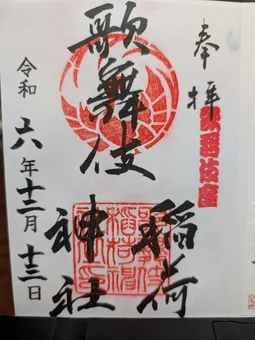 奉拝
歌舞伎座
歌舞伎
稲荷
神社
令和六年十二月十三日